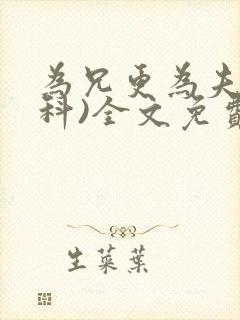 為兄更為夫
科)全文免費
生菜葉